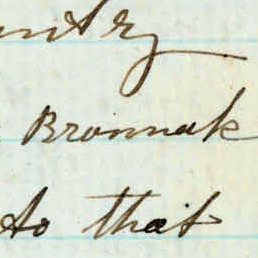 ntry
Bronnak
to that